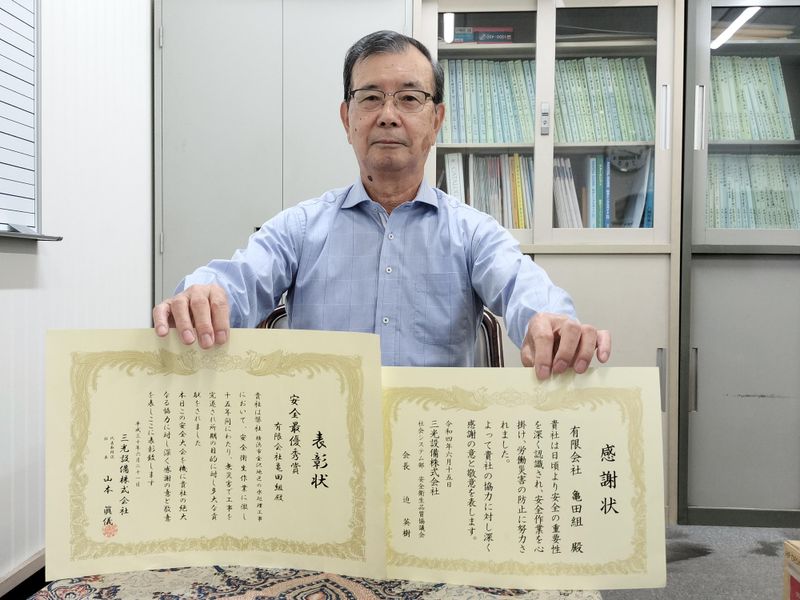 表彰状
安全最優秀賞
有限会社亀田組殿
貴社は弊社 横浜市金沢地区の水処理工事
において、安全衛生作業に徹し
十五年間にわたり、無災害で工事を
完遂され所期の目的に対し多大な貢
献をされました
本日この安全大会を機に貴社の絶大
なる協力に対し深く感謝の意と敬意
を表しここに表彰致します
平成三十年六月二十一日
三光設備株式会社
代表取締役
山本 眞儀
感謝状
有限会社 亀田組 殿
貴社は日頃より安全の重要性
を深く認識され、安全作業を心
掛け、労働災害の防止に努力さ
れました。
よって貴社の協力に対し深く
感謝の意と敬意を表します。
令和四年六月十五日
三光設備株式会社
社会システム部 安全衛生品質協議会
会長 迫 英樹